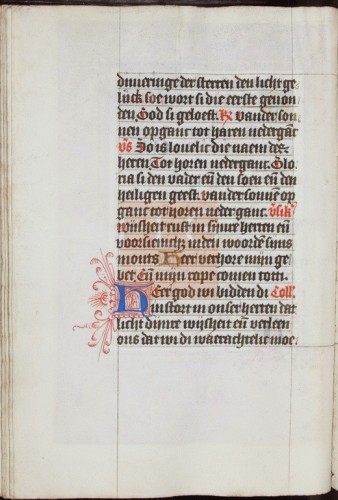 dinuringe der sterren den licht ge
lück soe wort si die eerste geuon
den God si geloeft. R vander son
nen opganc tot haren nedergāt
vs So is louelic die naem des
heren Tot horen nederganc. Glo
ria si den vader eñ den soen eñ den
heiligen geest. vander sonnen op
ganc tot horen nederganc. vsik
wijsheit rust in sijnre herten eñ
voorsienich inden woorde sijns
monts Heer verhore mijn ge
bet Eñ mijn rope comen totti.
Heer god wi bidden di Coll.
Ninstort in onser herten dat
licht dijnre wijsheit eñ verleen
ons dat wi di waerachtelic moe.